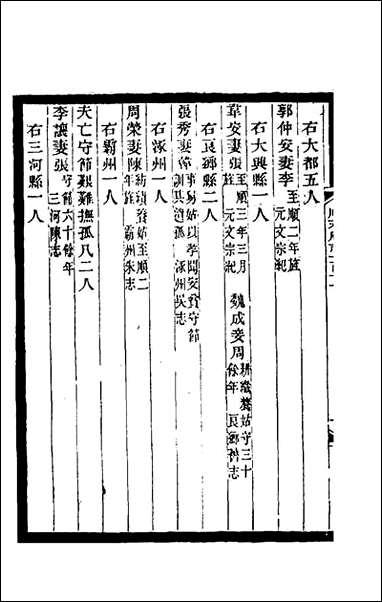 右大都五人
郭仲安妻李至順二年旌元文宗紀
右大興縣一人
韋安妻張旌至順三年三月元文宗紀 魏成妾周耕織養姑守三十餘年良鄉舊志
右良鄉縣二人
張秀妻韓事易姑以孝聞安貧守節訓其遺孤涿州吳志
右涿州一人
周榮妻陳紡績養姑至順二年旌霸州朱志
右霸州一人
夫亡守節艱難撫孤凡二人
李讓妻張守節六十餘年三河陳志
右三河縣一人